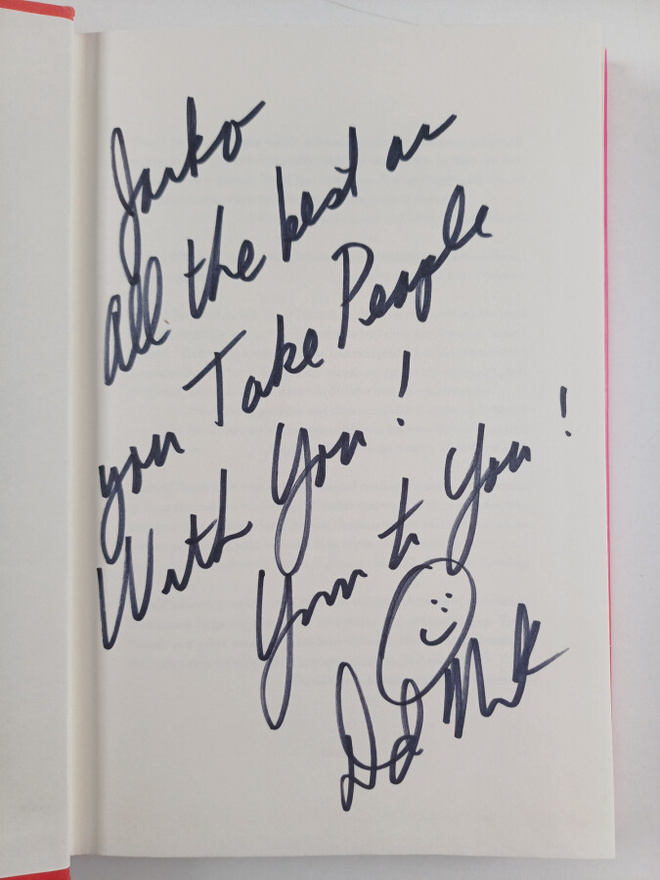 Jarko
All the best as
you Take People
With You!
Yum to You!